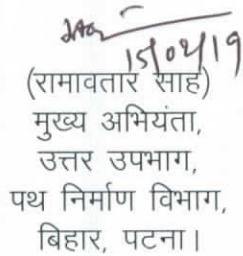 15/02/19
(रामावतार साह)
मुख्य अभियंता,
उत्तर उपभाग,
पथ निर्माण विभाग,
बिहार, पटना।